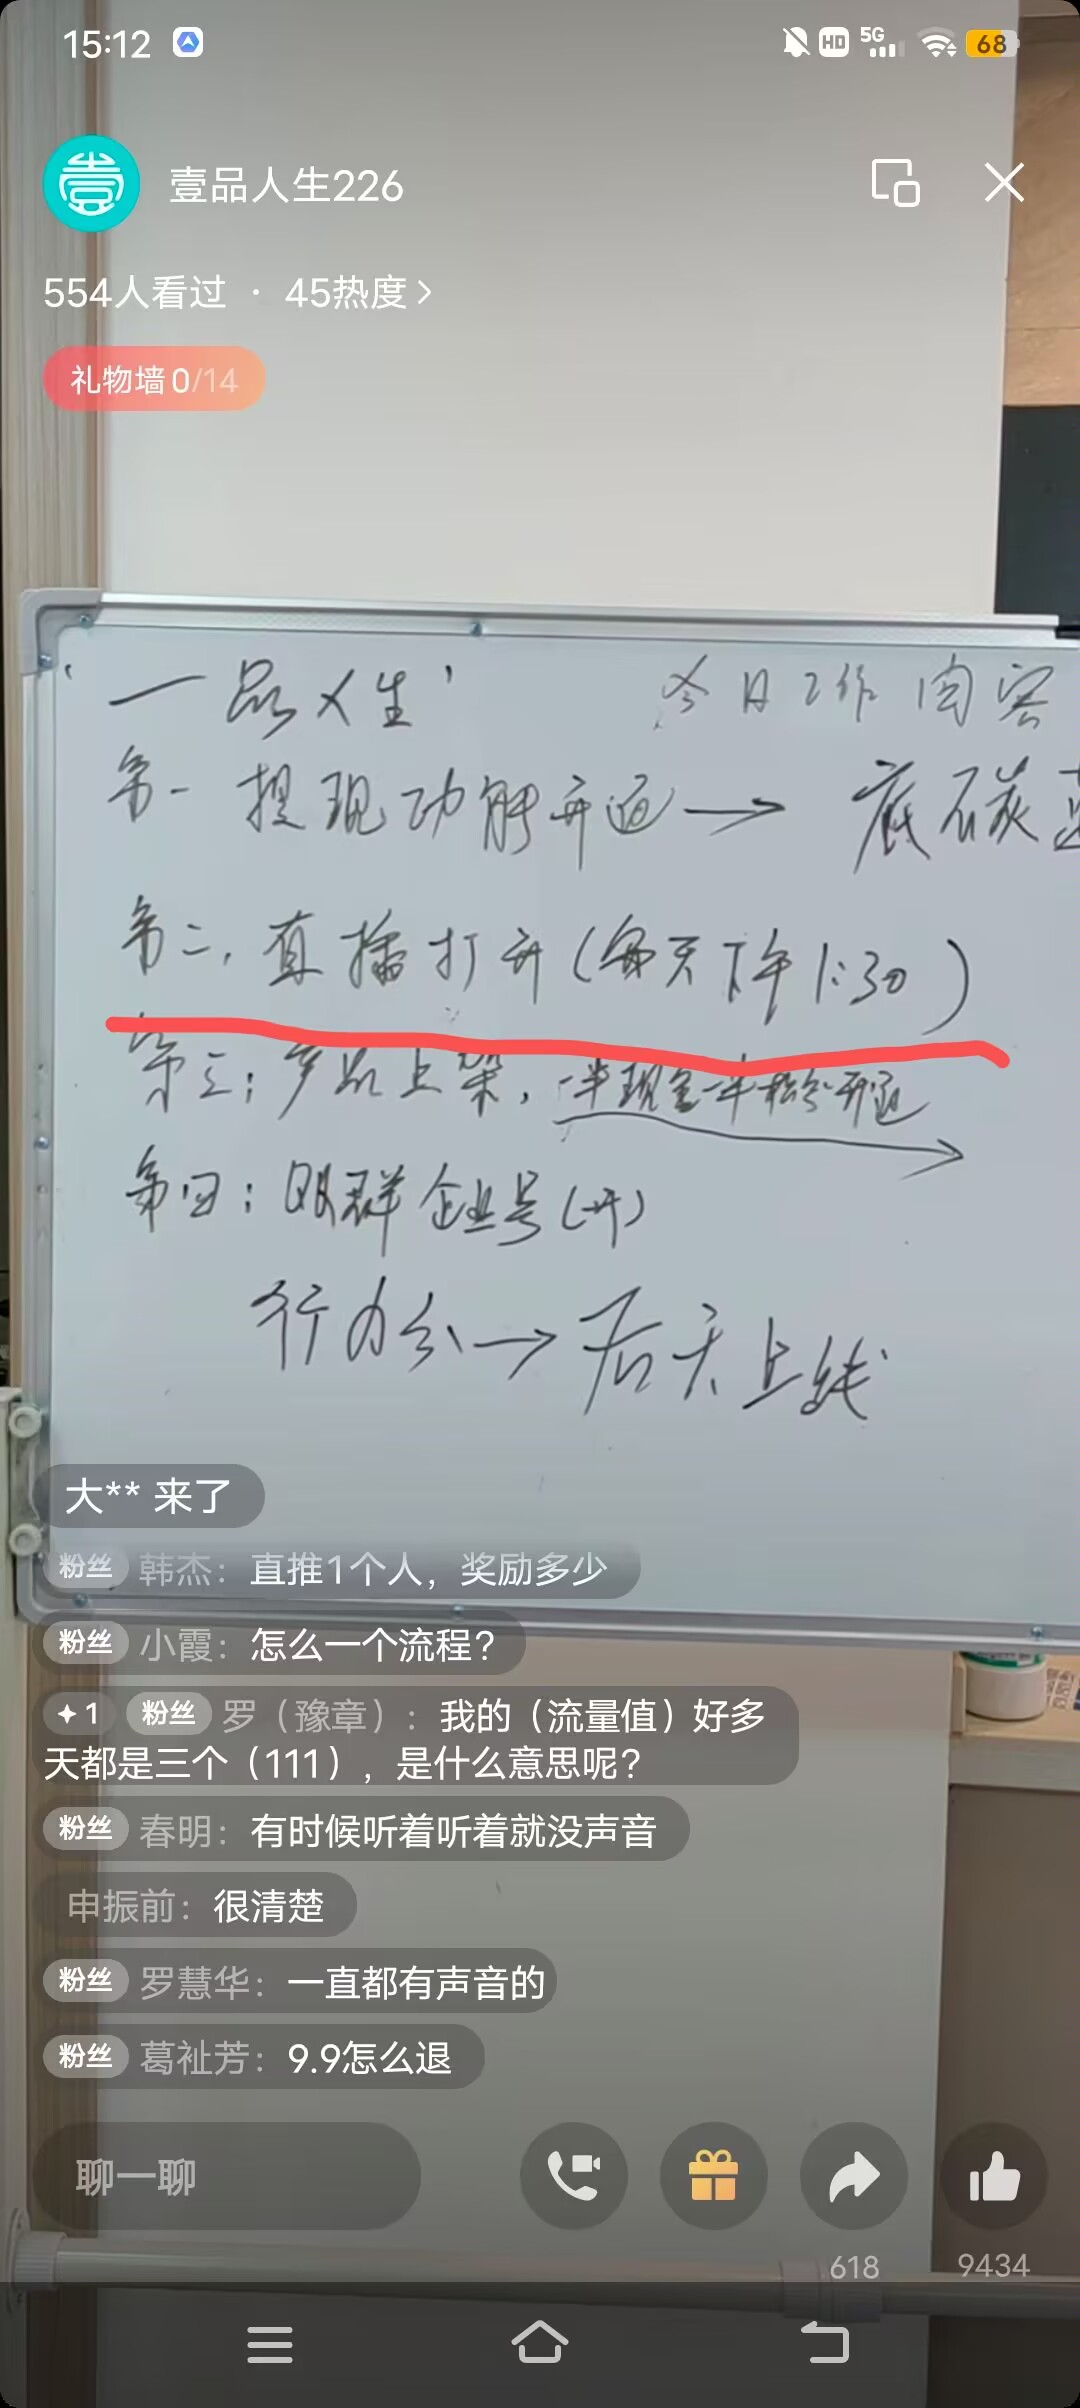 15:12
HD 5G 68
壹品人生226
554人看过 · 45热度
礼物墙0/14
'一品人生' 今日工作内容
第一 提现功能开通→底碳
第二,直播打开(每天下午1:30)
第三:产品上架,一半现金一半积分开通
第四:跟群企业号(开)
行办公→后天上线
大** 来了
粉丝 韩杰:直推1个人,奖励多少
粉丝 小霞:怎么一个流程?
1 粉丝 罗(豫章):我的(流量值)好多
天都是三个(111),是什么意思呢?
粉丝 春明:有时候听着听着就没声音
申振前:很清楚
粉丝 罗慧华:一直都有声音的
粉丝 葛祉芳:9.9怎么退
聊一聊
618
9434